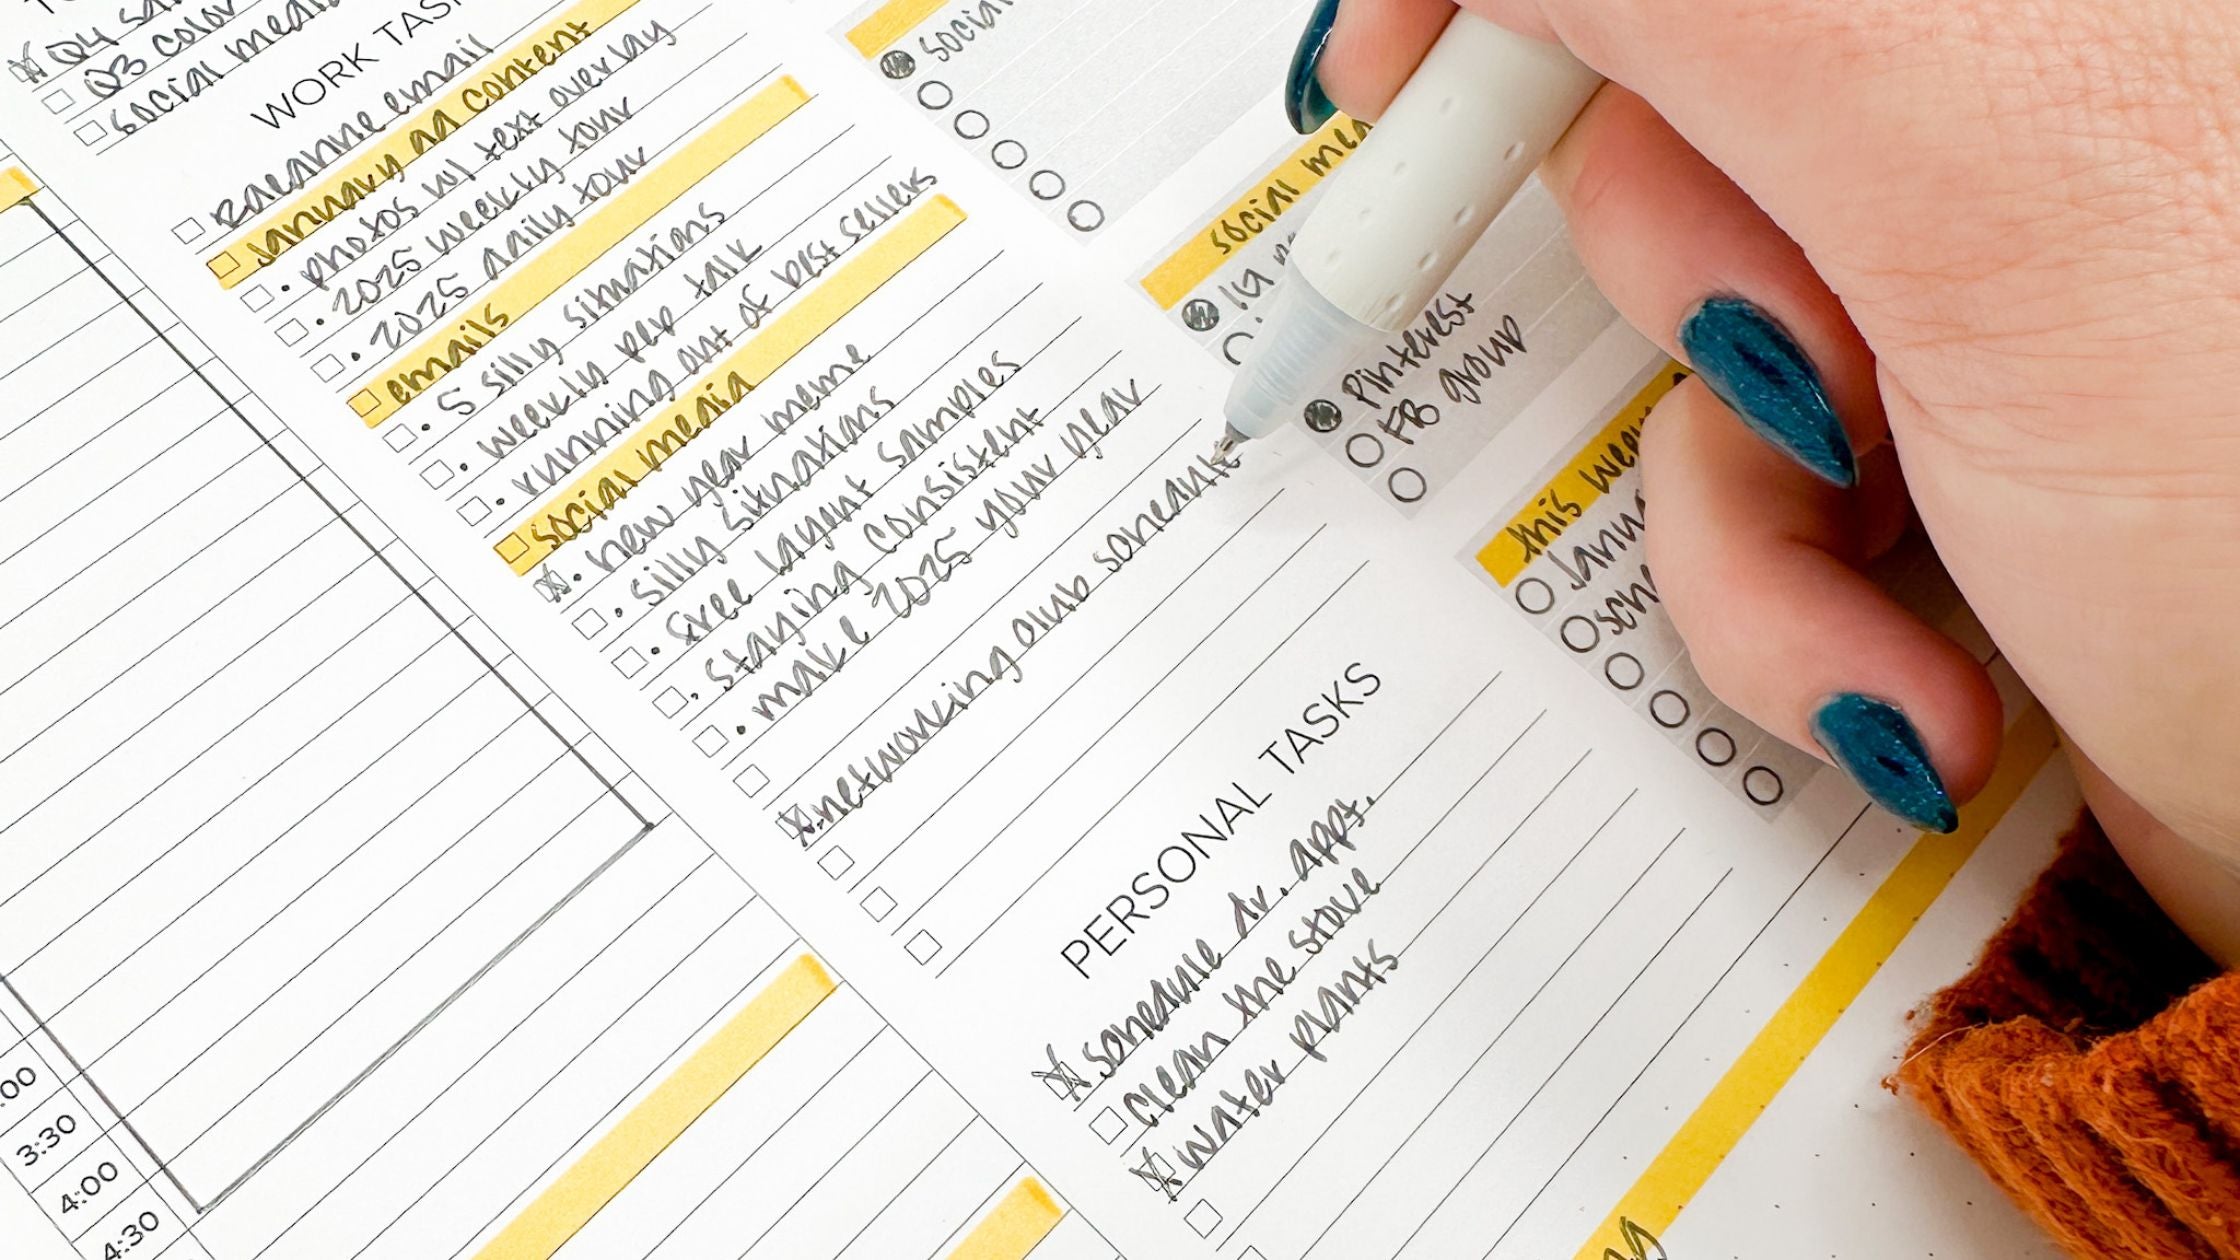 TO
Q4 sa
Q3 color
social media
WORK TASK
Raeanne email
January ad content
• photos w/ text overlay
• 2025 weekly tour
• 2025 daily tour
emails
• 5 silly situations
• weekly pep talk
• running out of best sellers
social media
• new year meme
• silly situations
• free layout samples
• staying consistent
• make 2025 your year
networking club schedule
PERSONAL TASKS
schedule dr. appt.
clean the stove
water plants
social
social med
IG
Pinterest
FB group
this week
Janu
sch
:00
3:30
4:00
4:30
ng